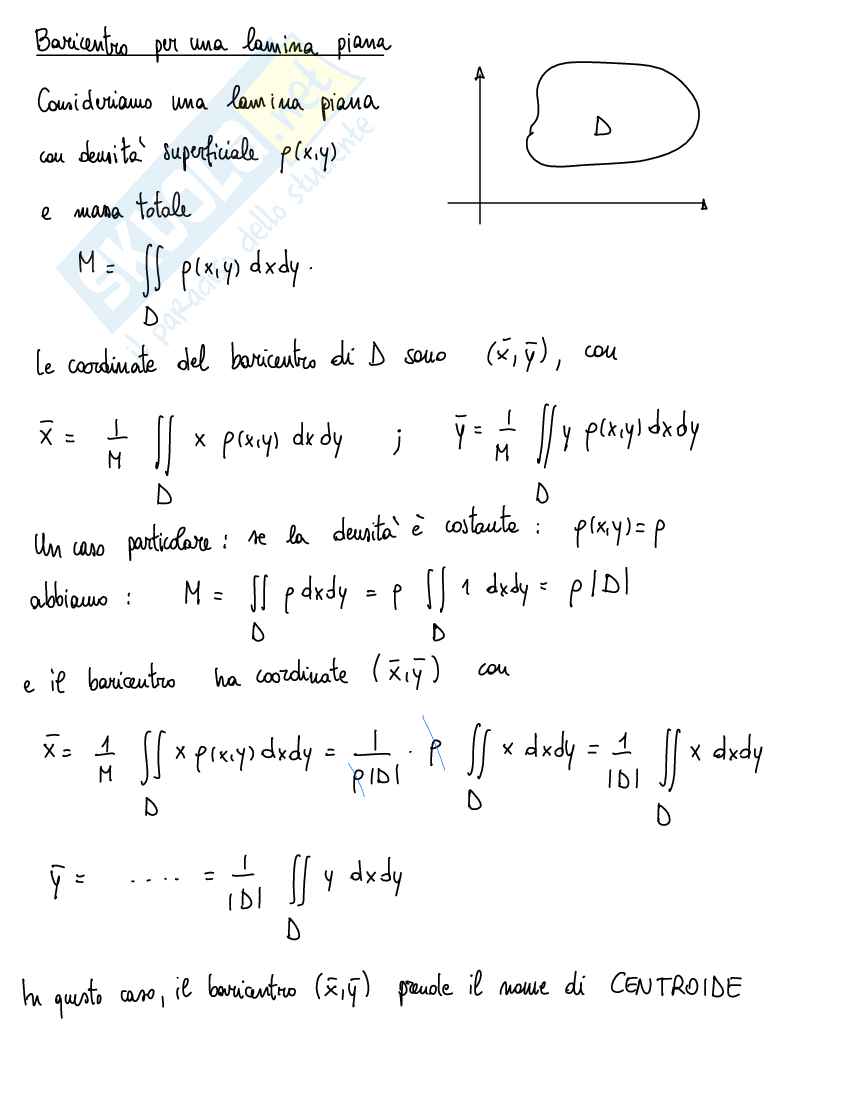 Baricentro per una lamina piana
Consideriamo una lamina piana
con densità superficiale ρ(x,y)
e massa totale
M = ∬_D ρ(x,y) dxdy.
D
Le coordinate del baricentro di D sono (x̄,ȳ), con
x̄ = 1/M ∬_D x ρ(x,y) dxdy ; ȳ = 1/M ∬_D y ρ(x,y) dxdy
Un caso particolare: se la densità è costante: ρ(x,y) = ρ
abbiamo: M = ∬_D ρ dxdy = ρ ∬_D 1 dxdy = ρ|D|
e il baricentro ha coordinate (x̄,ȳ) con
x̄ = 1/M ∬_D x ρ(x,y) dxdy = 1/(ρ|D|) · ρ ∬_D x dxdy = 1/|D| ∬_D x dxdy
ȳ = .... = 1/|D| ∬_D y dxdy
In questo caso, il baricentro (x̄,ȳ) prende il nome di CENTROIDE
SKUOLA.net
il paradiso dello studente